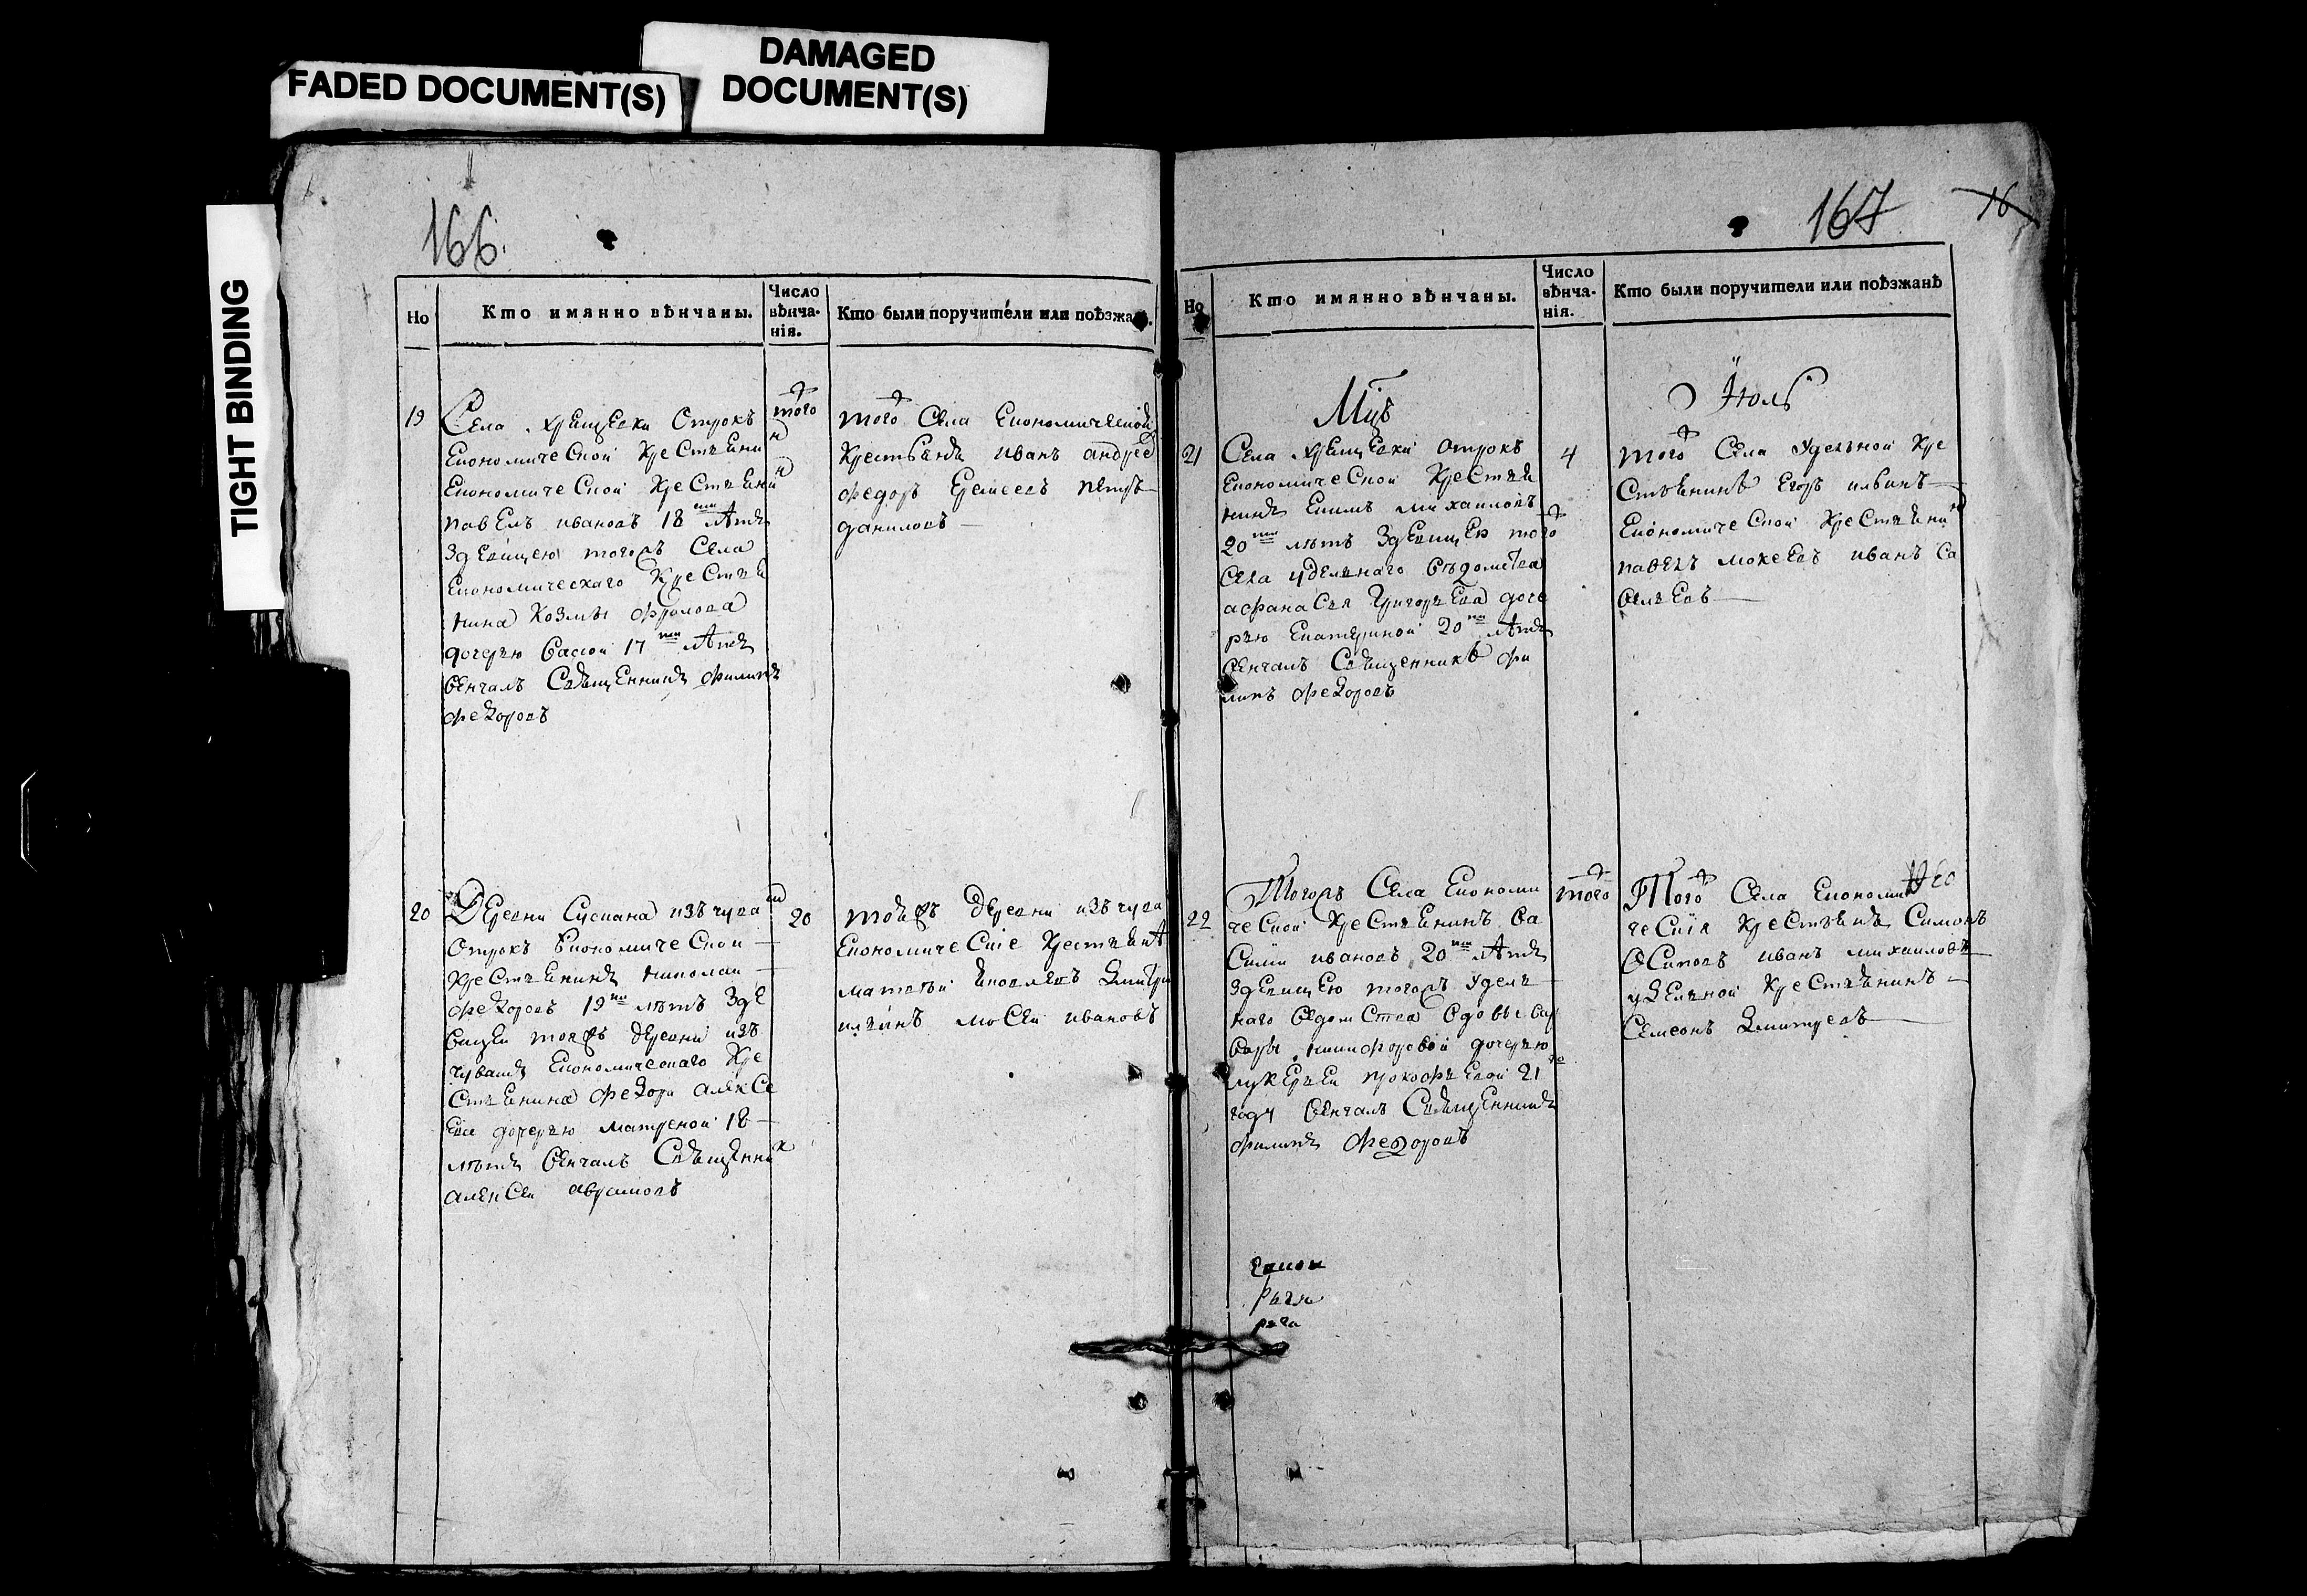 FADED DOCUMENT(S)
DAMAGED
DOCUMENT(S)
TIGHT BINDING
166.
Но
Кто имянно вѣнчаны.
Число
вѣнча-
нія.
Кто были поручители или поѣзжа
19
Села хрящевки отрокъ
Економической крестьяни
Економической крестьянин
павелъ ивановъ 18ти лѣтъ
здевицею тогожъ Села
Економическаго крестья
нина козмы фролова
дочерью васою 17ти лѣтъ
венчалъ Священникъ филипъ
федоровъ
того
того Села Економической
крестьянъ иванъ андрее
федоръ Еремеевъ петръ
даниловъ
20
Деревни Сускана изъ чуваш
отрокъ Економической
крестьянинъ николаи
федоровъ 19ти лѣтъ зде
вицеи тояжъ деревни изъ
чувашъ Економическаго кре
стьянина федора алексе
ева дочерью матреной 18
лѣтъ венчалъ Священник
алексеи аврамовъ
20
тояжъ деревни изъ чува
Економическіе крестьянѣ
матвеи яковлевъ дмитри
ильинъ мосеи ивановъ
167
16
Но
Кто имянно вѣнчаны.
Число
вѣнча-
нія.
Кто были поручители или поѣзжанѣ
Мцъ
Іюль
21
Села хрящевки отрокъ
Економической крестья
нинъ Екимъ михаиловъ
20ти лѣтъ здевицею того
Села удельнаго ведомства
афанасья григорьева доче
рью Екатериной 20ти лѣтъ
венчалъ Священникъ фи
липъ федоровъ
4
того Села удельной кре
стьянинъ Егоръ ильинъ
Економической крестьянин
павелъ мокеевъ иванъ са
вельевъ
22
Тогожъ Села Економи
ческой крестьянинъ ва
силіи ивановъ 20ти лѣтъ
здевицею тогожъ удель
наго ведомства вдовы вар
вары никифоровой дочерью
лукерьеи прокофьевой 21го
году венчалъ Священникъ
филипъ федоровъ
того
Того Села Економи
ческія крестьянъ Симонъ
Осиповъ иванъ михаиловъ
удельной крестьянинъ
Семеонъ дмитревъ